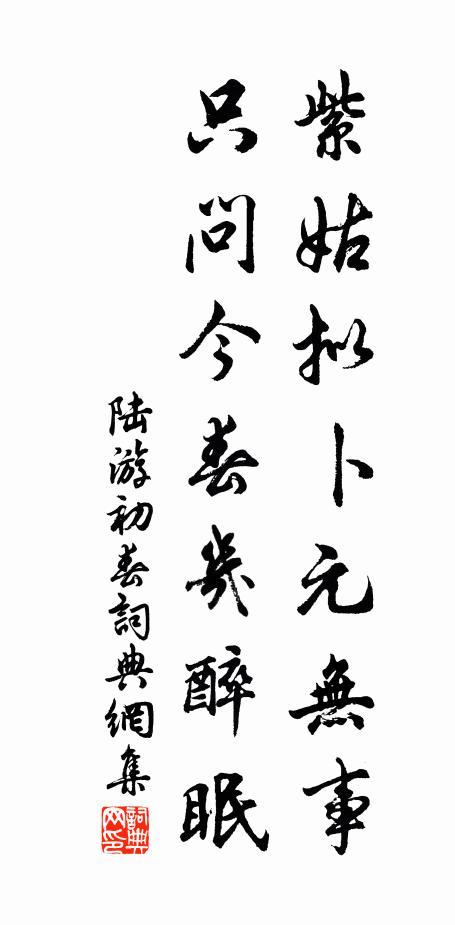 紫姑拟卜元無事
只問今春幾醉眠
陆游初春詞典網集
詞典网印